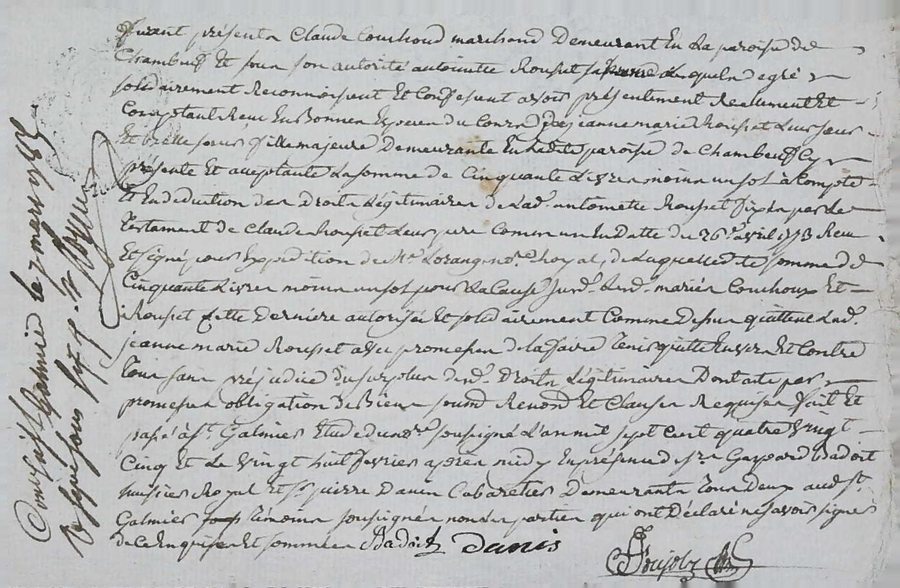 furent présents Claude Couchoud marchand Demeurant En La paroisse de
Chambeuf Et sous son autorité antoinette Rousset sa femme Lesquels de gré
solidairement Reconnoissent Et Confessent avoir présentement Reellement Et
Comptant Reçu En Bonnes Especes du Cours De jeanne marie Rousset Leur sœur
Et Belle sœur fille majeure Demeurante En Ladite paroisse de Chambeuf Cy
présente Et acceptante La somme de Cinquante Livres moins un sol à Compte
Et En deduction des Droits Légitimaires de Lad. antoinette Rousset fixés par Le
Testament de Claude Rousset Leur pere Commun En Datte du 26 avril 1773 Reçu
Et signé pour Expedition de Me Lorange no.re Royal, de Laquelle dte somme de
Cinquante Livres moins un sol pour La Cause susd. Lesd. mariés Couchoux Et
Rousset Cette Derniere autorisée Et solidairement Comme Dessus quittent Lad.
jeanne marie Rousset avec promesse de La faire Tenir quitte Envers Et Contre
Tous sans préjudice du surplus desd. Droits Légitimaires Dont acte par
promesses obligation de Biens soumd. Renond. Et Clauses Requises fait Et
passé à St. Galmier Etude du no.re soussigné L'an mil sept Cent quatre vingt
Cinq Et Le vingt huit fevrier après midy En présence de sr. Gaspard Badoit
huissier Royal Et sr. pierre Danis Cabaretier Demeurants Tous Deux aud. St.
Galmier Témoins soussignés non Les parties qui ont Déclaré ne sçavoir signer
de Ce Enquises Et sommées Badoit Danis
Controllé à St Galmier le 7 mars 1785
Reçu quinze sous six d.